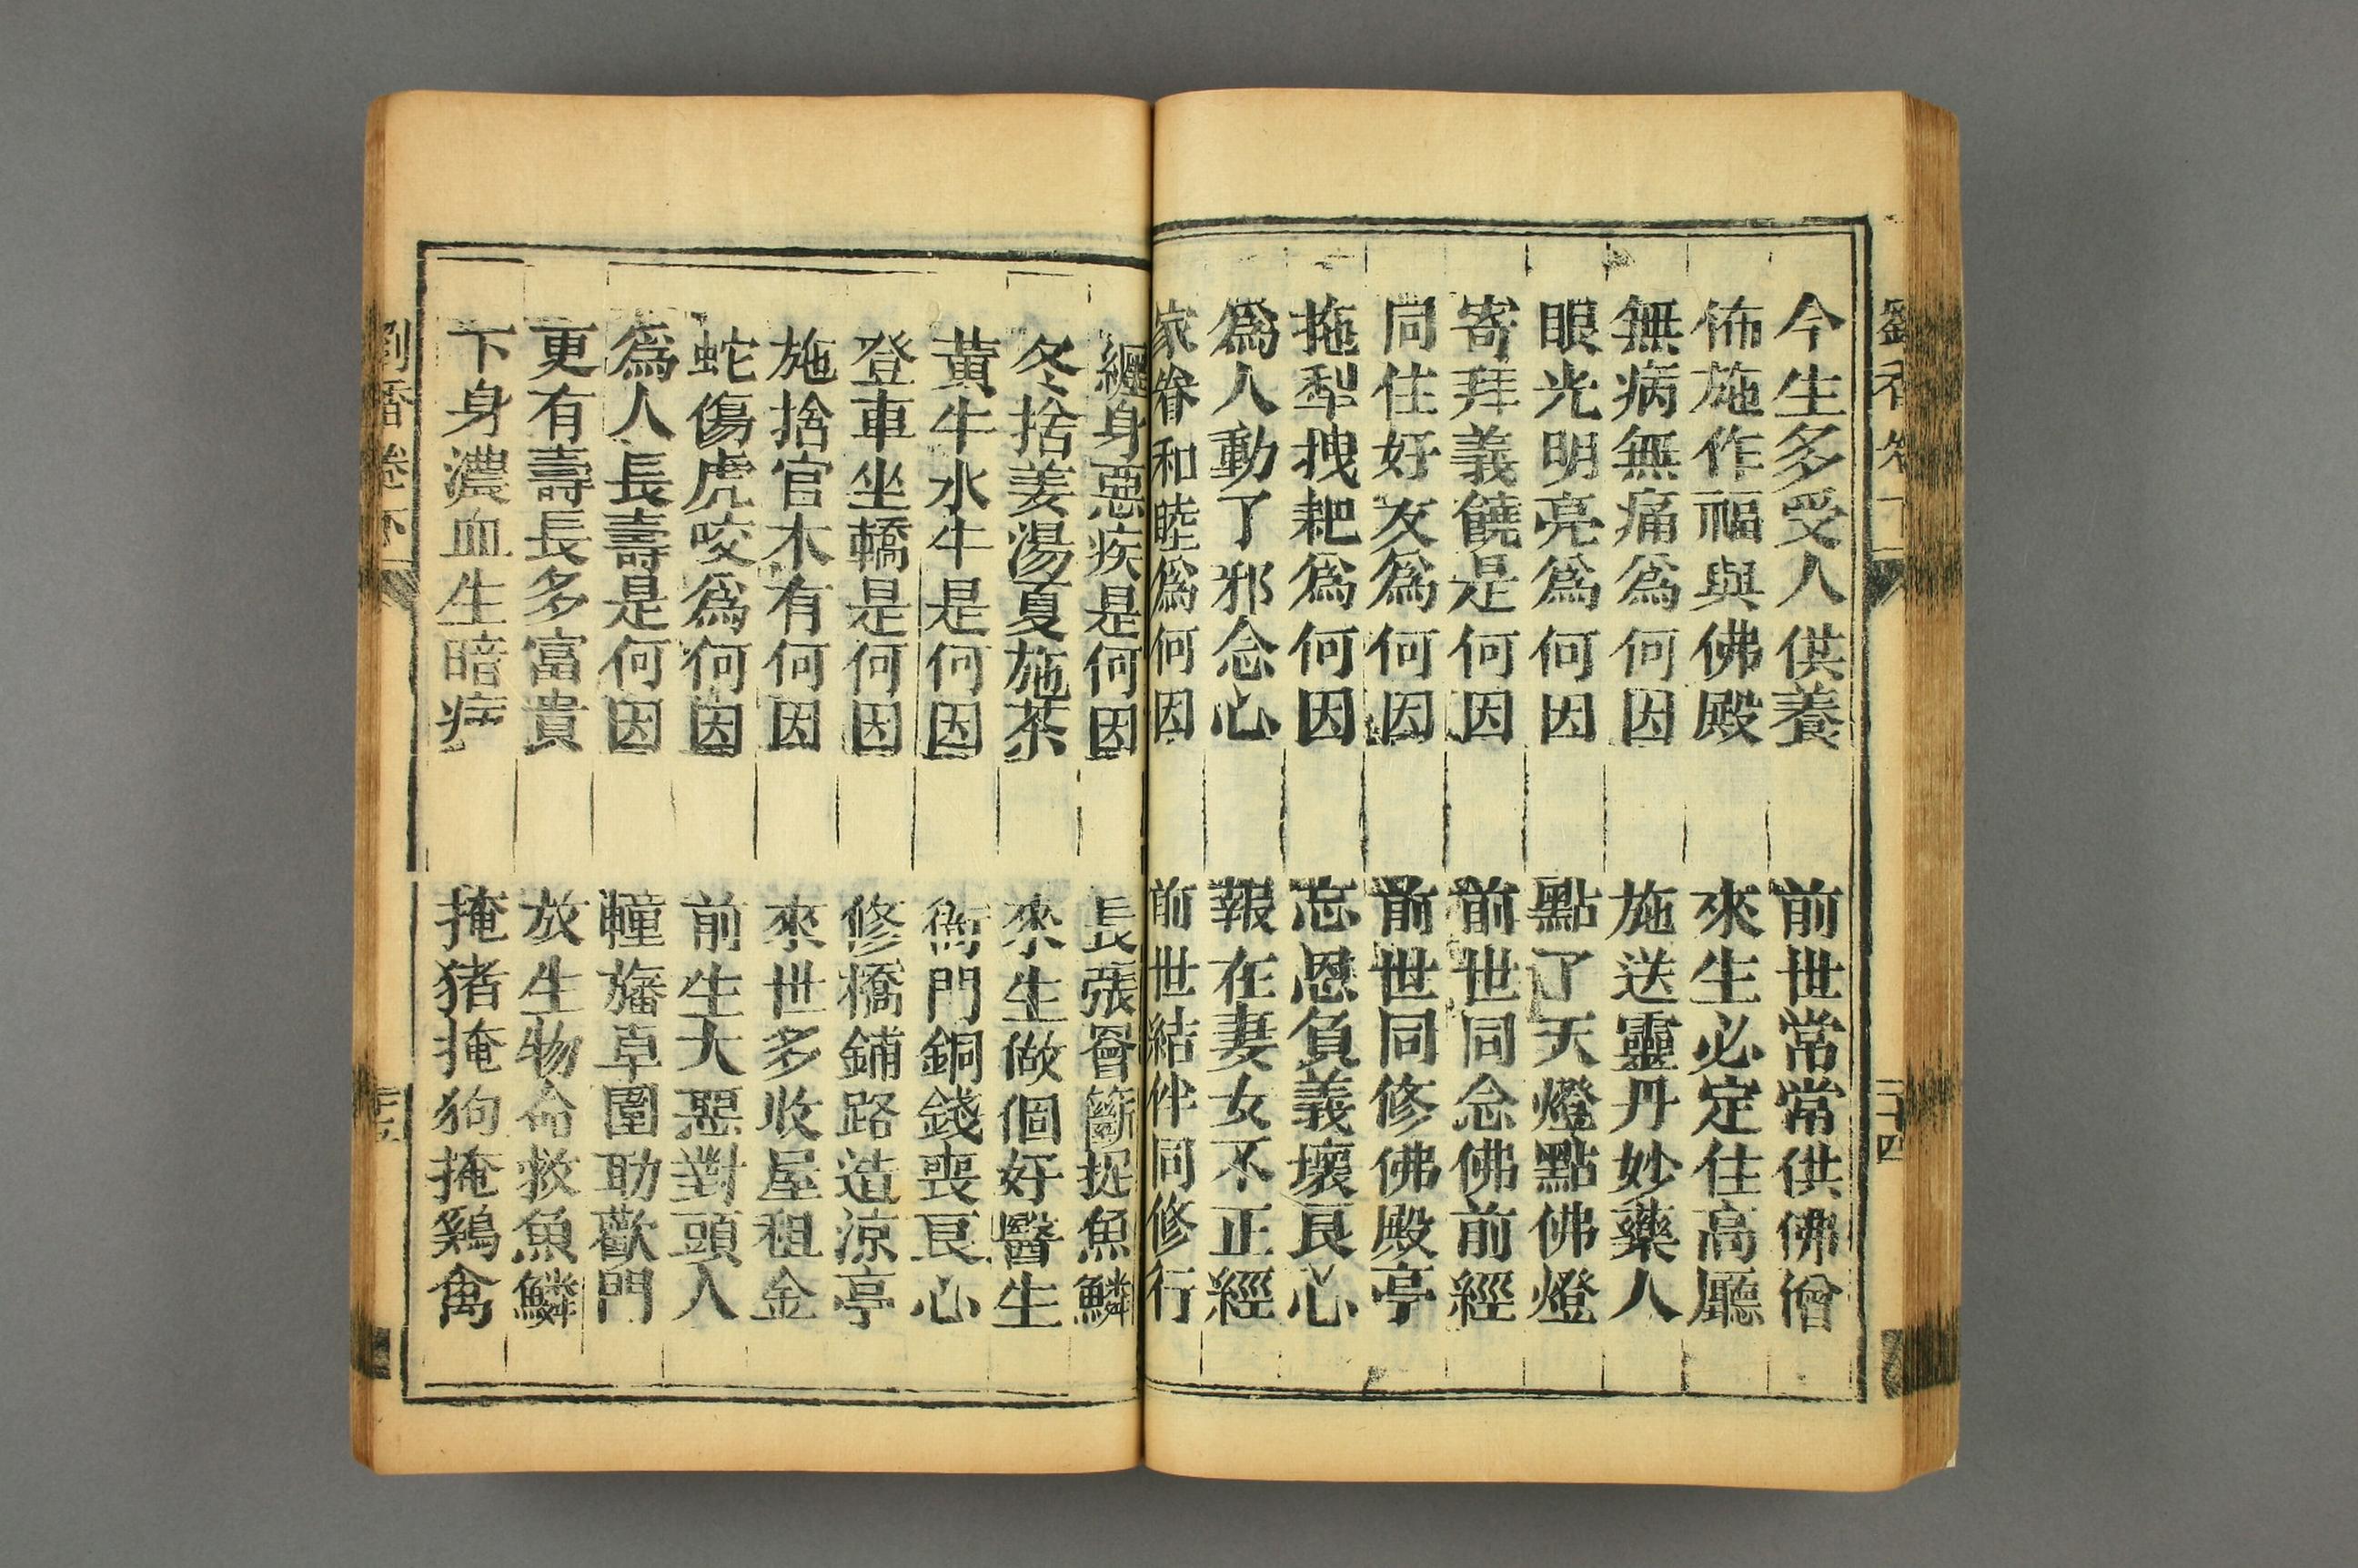 劉香卷下
二十四
今生多受人供養　前世常常供佛僧
佈施作福與佛殿　來生必定住高廳
無病無痛爲何因　施送靈丹妙藥人
眼光明亮爲何因　點了天燈點佛燈
寄拜義饒是何因　前世同念佛前經
同住好友爲何因　前世同修佛殿亭
拖犁拽耙爲何因　忘恩負義壞良心
爲人動了邪念心　報在妻女不正經
家眷和睦爲何因　前世結伴同修行
纏身惡疾是何因　長張罾籪捉魚鱗
冬捨姜湯夏施茶　來生做個好醫生
黄牛水牛是何因　衙門銅錢喪良心
登車坐轎是何因　修橋鋪路造涼亭
施捨官木有何因　來世多收屋租金
蛇傷虎咬爲何因　前生大惡對頭人
爲人長壽是何因　幢旛卓圍助歡門
更有壽長多富貴　放生物命救魚鱗
下身濃血生暗病　掩猪掩狗掩鷄禽
劉香卷下